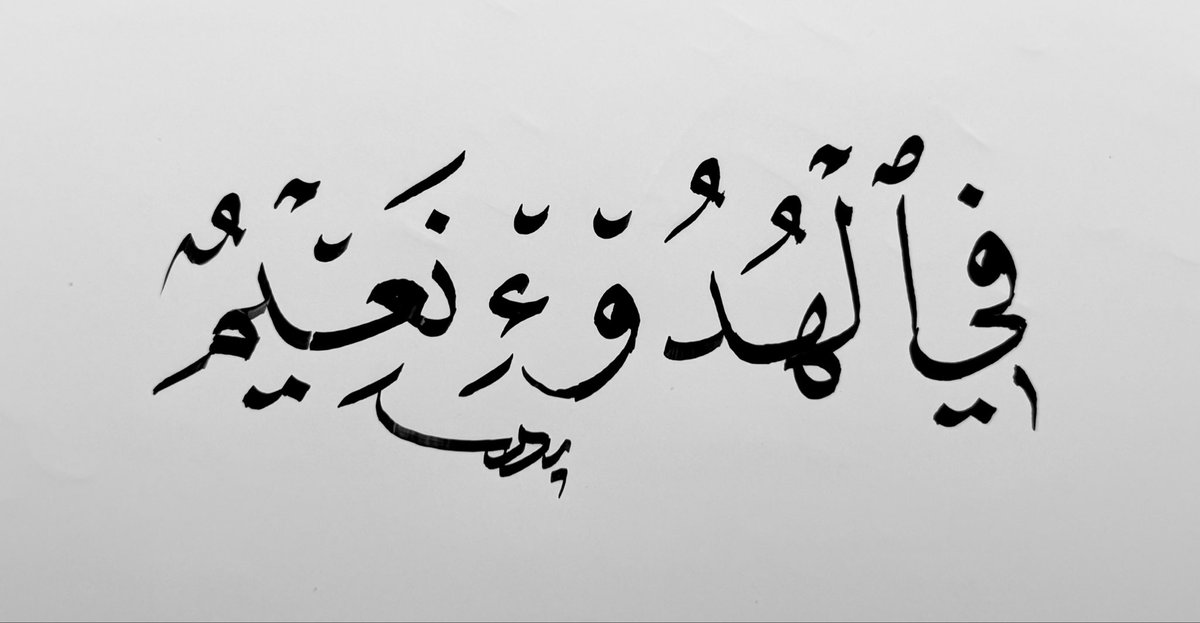 فِي ٱلْهُدُوْءِ نَعِيْمٌ